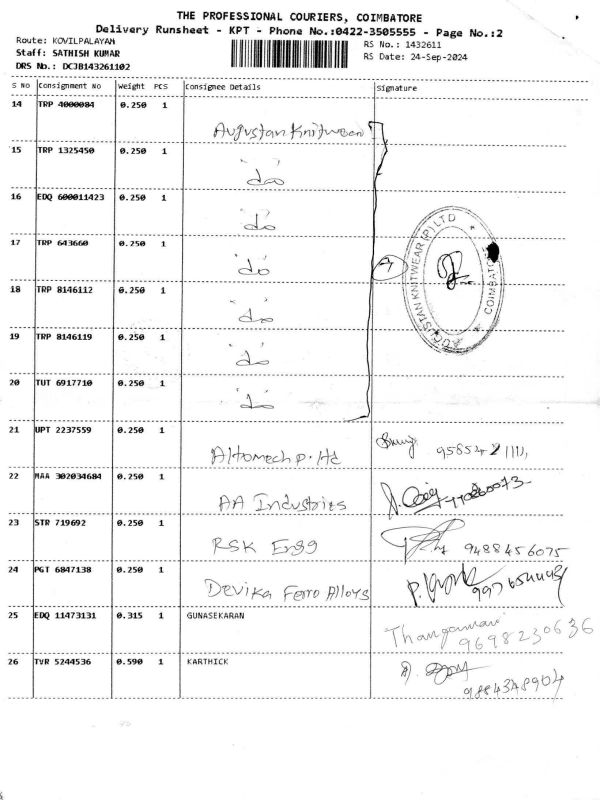 THE PROFESSIONAL COURIERS, COIMBATORE
Delivery Runsheet - KPT - Phone No.:0422-3505555 - Page No.:2
Route: KOVILPALAYAM
RS No.: 1432611
Staff: SATHISH KUMAR
RS Date: 24-Sep-2024
DRS No.: DCJB143261102
S No Consignment No Weight PCS Consignee Details Signature
14 TRP 4000084 0.250 1
Augustan Knitwear
15 TRP 1325450 0.250 1
"do"
16 EDQ 600011423 0.250 1
"do"
17 TRP 643660 0.250 1
"do"
7
AUGUSTAN KNITWEAR (P) LTD
COIMBATORE
18 TRP 8146112 0.250 1
"do"
19 TRP 8146119 0.250 1
"do"
20 TUT 6917710 0.250 1
"do"
21 UPT 2237559 0.250 1
Altomech p. Ltd
22 MAA 302034684 0.250 1
AA Industries
23 STR 719692 0.250 1
RSK Engg 9488456075
24 PGT 6847138 0.250 1
Devika Ferro Alloys
25 EDQ 11473131 0.315 1 GUNASEKARAN
Thangamani
9698230636
26 TVR 5244536 0.590 1 KARTHICK
9884348904